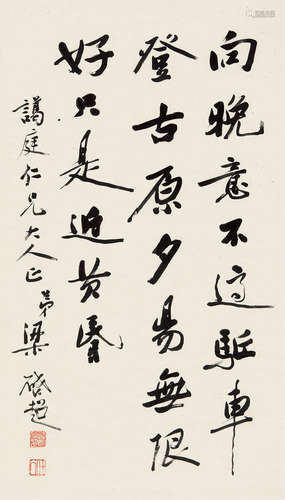 向晚意不適駈車
登古原夕昜無限
好只是近黄昏
藹庭仁兄大人正 弟梁啟超